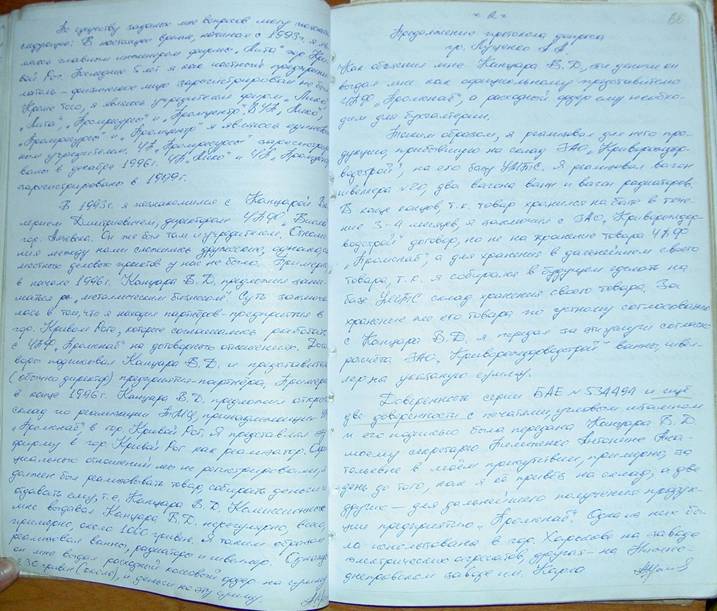 По существу заданных мне вопросов могу пояснить
следующее: В настоящее время, начиная с 1995 г. я яв-
ляюсь главным инженером фирмы „Лита" гор. Кри-
вой Рог. Последние 5 лет я как частный предприни-
матель – физическое лицо зарегистрирован не был.
Кроме того, я являюсь учредителем фирм „Пико",
„Лита", „Промресурсы" и „Промцентр". В ЧП „Пико",
„Промресурсы" и „Промцентр" я являюсь единствен-
ным учредителем. ЧП „Промресурсы" зарегистриро-
ваны в декабре 1996 г. ЧП „Пико" и ЧП „Промцентр"
зарегистрированы в 1997 г.
В 1993 г. я познакомился с Канцарой Ва-
лерием Дмитриевичем, директором ЧПФ
гор. Он же был там и учредителем. Отноше-
ния между нами сложились дружеские, однако до
местного делового проектов у нас не было. Примерно
в начале 1996 г. Канцара В.Д. предложил зани-
маться „металлическим бизнесом". Суть заключа-
лась в том, что я находил партнёров-предприятия в
гор. Кривом Роге, которые соглашались работать
с ЧПФ на договорных отношениях. Дого-
вора подписывал Канцара В.Д. и представитель
(обычно директор) предприятия-партнёра. Примерно
в конце 1996 г. Канцара В.Д. предложил открыть
склад по реализации ТМЦ, принадлежащих
в гор. Кривой Рог. Я представлял его
фирму в гор. Кривой Рог как реализатор. Офи-
циальных отношений мы не регистрировали, я
должен был реализовывать товар, собирать деньги и
отдавать ему, т.е. Канцара В.Д. Комиссионные
мне выдавал Канцара В.Д. нерегулярно, всего,
примерно, около 1000 гривен. Я таким образом
реализовал ванны, радиаторы и швеллер. Однажды
он мне выдал расходный кассовый ордер на сумму
гривен (около), и деньги на эту сумму.
- 2 -
86
Продолжение протокола допроса
гр. Луценко А.А.
Как объяснил мне Канцара В.Д., эти деньги он
выдал мне как официальному представителю
ЧПФ, а расходный ордер ему необхо-
дим для бухгалтерии.
Таким образом, я реализовал для него про-
дукцию, прибывшую на склад ЗАО „Криворождор-
водстрой", на его базу УМТС. Я реализовал вагон
швеллера №20, два вагона ванн и вагон радиаторов.
В конце концов, т.к. товар хранился на базе в тече-
ние 3-4 месяцев, я заключил с ЗАО „Криворождор-
водстрой" договор, но не на хранение товара ЧПФ
а для хранения в дальнейшем своего
товара, т.к. я собирался в будущем сделать на
базе УМТС склад хранения своего товара. За
хранение же его товара по устному согласованию
с Канцара В.Д. я передал за эти услуги согласно
расчёта ЗАО „Криворождорводстрой" ванны, швел-
лер на указанную сумму.
Доверенность серии БАЕ №534494 и ещё
две доверенности с печатями, угловым штампом
и его подписью была передана Канцара В.Д.
моему секретарю Антонине Ана-
тольевне в моём присутствии, примерно, за
день до того, как я её привёз на склад, а две
других – для дальнейшего получения продук-
ции предприятию. Одна из них бы-
ла использована в гор. Харькове на заводе
электрических агрегатов, другая – на Нижне-
днепровском заводе им. Карла